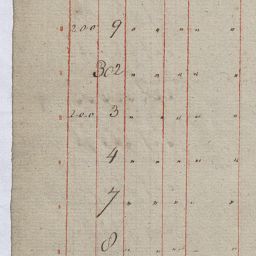 200 9 " " " " "
302 " " " " "
200 3 " " " " "
4 " " " " "
7 " " " " "
8 " " " " "